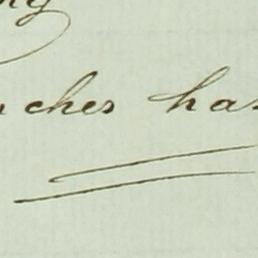 ng
ches has